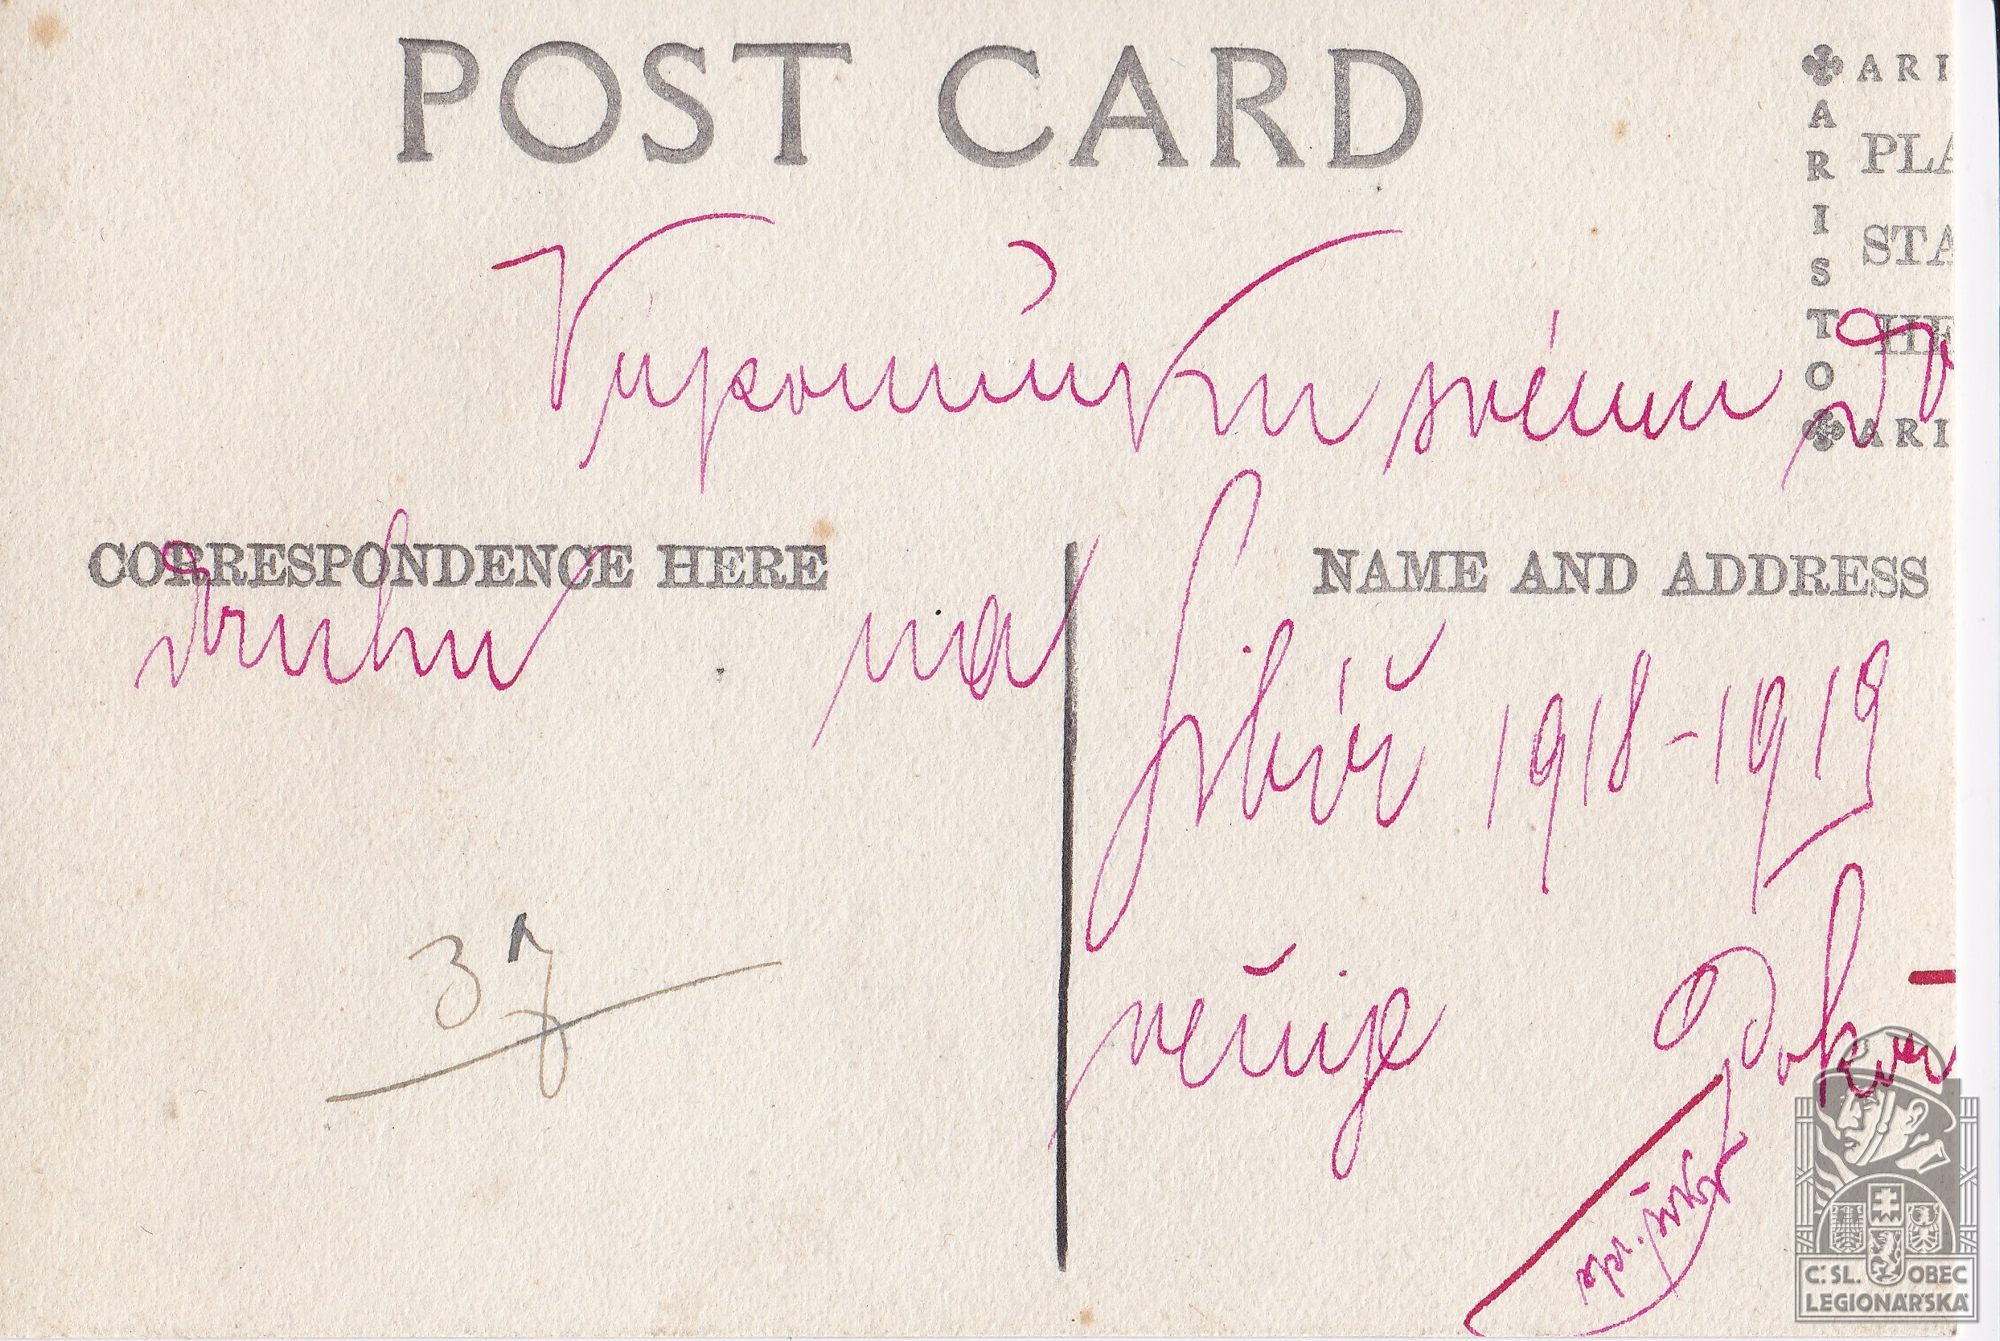 POST CARD
ARI
ARISTO
PLA
STA
HE
ARI
Vzpomínku svému
CORRESPONDENCE HERE
NAME AND ADDRESS
druhu na Sibiř 1918-1919
věnuje
37
Č.SL. OBEC
LEGIONÁŘSKÁ